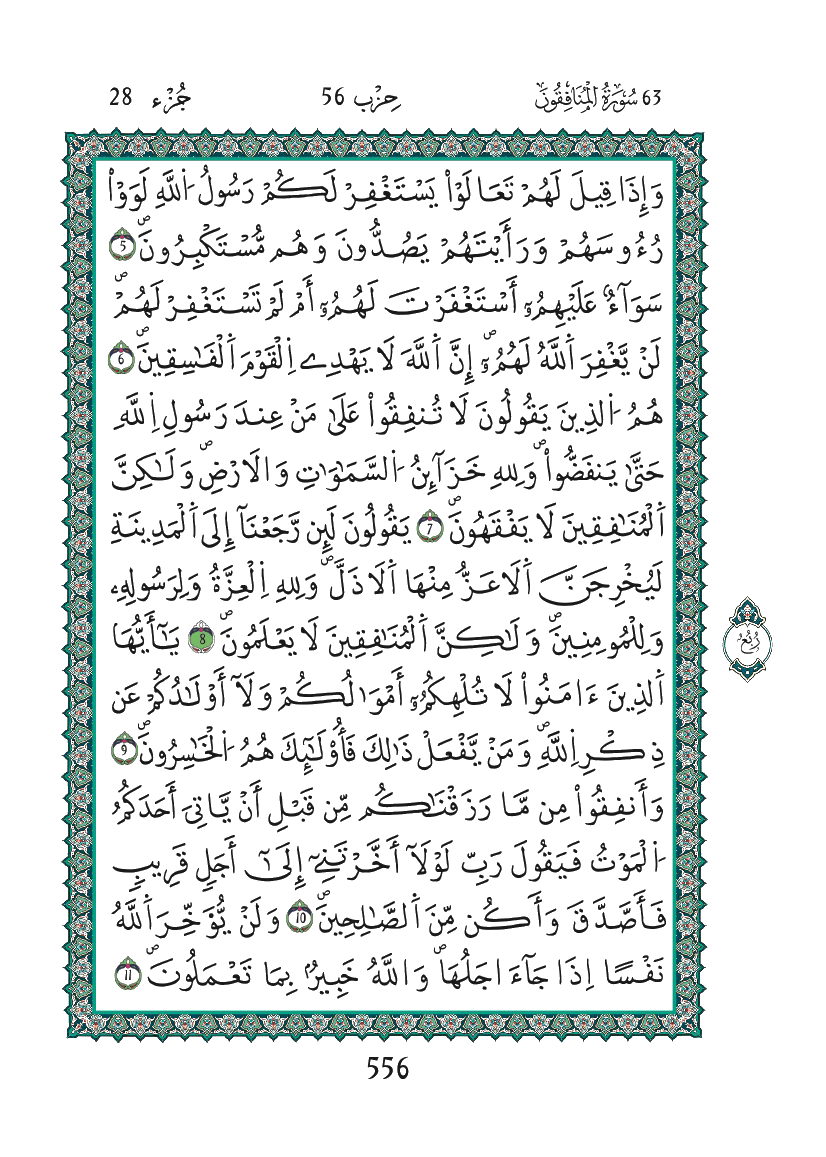 63 سُورَةُ الْمُنَافِقُونَ حِزْب 56 جُزْء 28
وَإِذَا قِيلَ لَهُمْ تَعَالَوْاْ يَسْتَغْفِرْ لَكُمْ رَسُولُ اُ۬للَّهِ لَوَوْاْ
رُءُوسَهُمْ وَرَأَيْتَهُمْ يَصُدُّونَ وَهُم مُّسْتَكْبِرُونَۖ 5
سَوَآءٌ عَلَيْهِمُۥٓ أَسْتَغْفَرْتَ لَهُمُۥٓ أَمْ لَمْ تَسْتَغْفِرْ لَهُمْۖ
لَنْ يَّغْفِرَ اَ۬للَّهُ لَهُمُۥٓۖ إِنَّ اَ۬للَّهَ لَا يَهْدِے اِ۬لْقَوْمَ اَ۬لْفَٰسِقِينَۖ 6
هُمُ اُ۬لذِينَ يَقُولُونَ لَا تُنفِقُواْ عَلَىٰ مَنْ عِندَ رَسُولِ اِ۬للَّهِ
حَتَّىٰ يَنفَضُّواْۖ وَلِلهِ خَزَآئِنُ اُ۬لسَّمَٰوَٰتِ وَالَارْضِۖ وَلَٰكِنَّ
اَ۬لْمُنَٰفِقِينَ لَا يَفْقَهُونَۖ 7 يَقُولُونَ لَئِن رَّجَعْنَآ إِلَى اَ۬لْمَدِينَةِ
لَيُخْرِجَنَّ اَ۬لَاعَزُّ مِنْهَا اَ۬لَاذَلَّۖ وَلِلهِ اِ۬لْعِزَّةُ وَلِرَسُولِهِۦ
وَلِلْمُومِنِينَۖ وَلَٰكِنَّ اَ۬لْمُنَٰفِقِينَ لَا يَعْلَمُونَۖ 8 يَٰٓأَيُّهَا
اَ۬لذِينَ ءَامَنُواْ لَا تُلْهِكُمُۥٓ أَمْوَٰلُكُمْ وَلَآ أَوْلَٰدُكُمْ عَن
ذِكْرِ اِ۬للَّهِۖ وَمَنْ يَّفْعَلْ ذَٰلِكَ فَأُوْلَٰٓئِكَ هُمُ اُ۬لْخَٰسِرُونَۖ 9
وَأَنفِقُواْ مِن مَّا رَزَقْنَٰكُم مِّن قَبْلِ أَنْ يَّاتِىَ أَحَدَكُمُ
اُ۬لْمَوْتُ فَيَقُولَ رَبِّ لَوْلَآ أَخَّرْتَنِےٓ إِلَىٰٓ أَجَلٖ قَرِيبٖ
فَأَصَّدَّقَ وَأَكُن مِّنَ اَ۬لصَّٰلِحِينَۖ 10 وَلَنْ يُّؤَخِّرَ اَ۬للَّهُ
نَفْسًا اِذَا جَآءَ اجَلُهَاۖ وَاللَّهُ خَبِيرُۢ بِمَا تَعْمَلُونَۖ 11
رُبُع
556